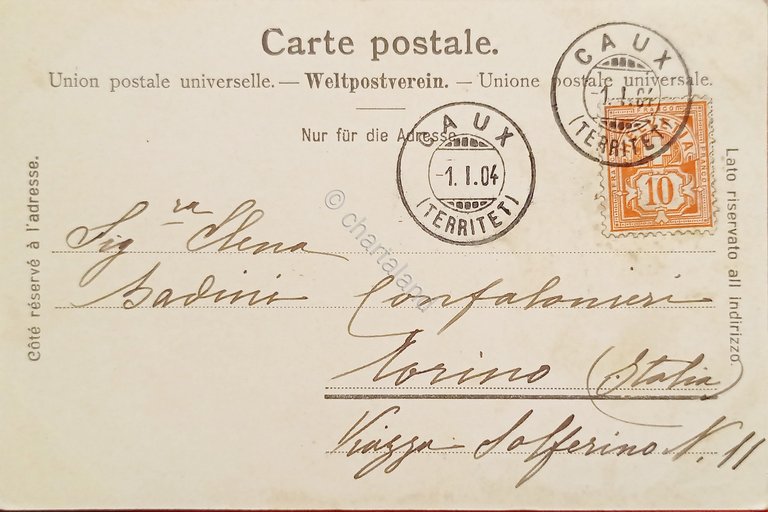 Carte postale.
Union postale universelle. — Weltpostverein. — Unione postale universale.
Nur für die Adresse
CAUX
-1.I.04
(TERRITET)
CAUX
-1.I.04
(TERRITET)
FRANCO
10
Côté réservé à l'adresse.
Lato riservato all indirizzo.
Sig.ra Elena
Badini Confalonieri
Torino (Italia)
Piazza Solferino N. 11
© chartaland